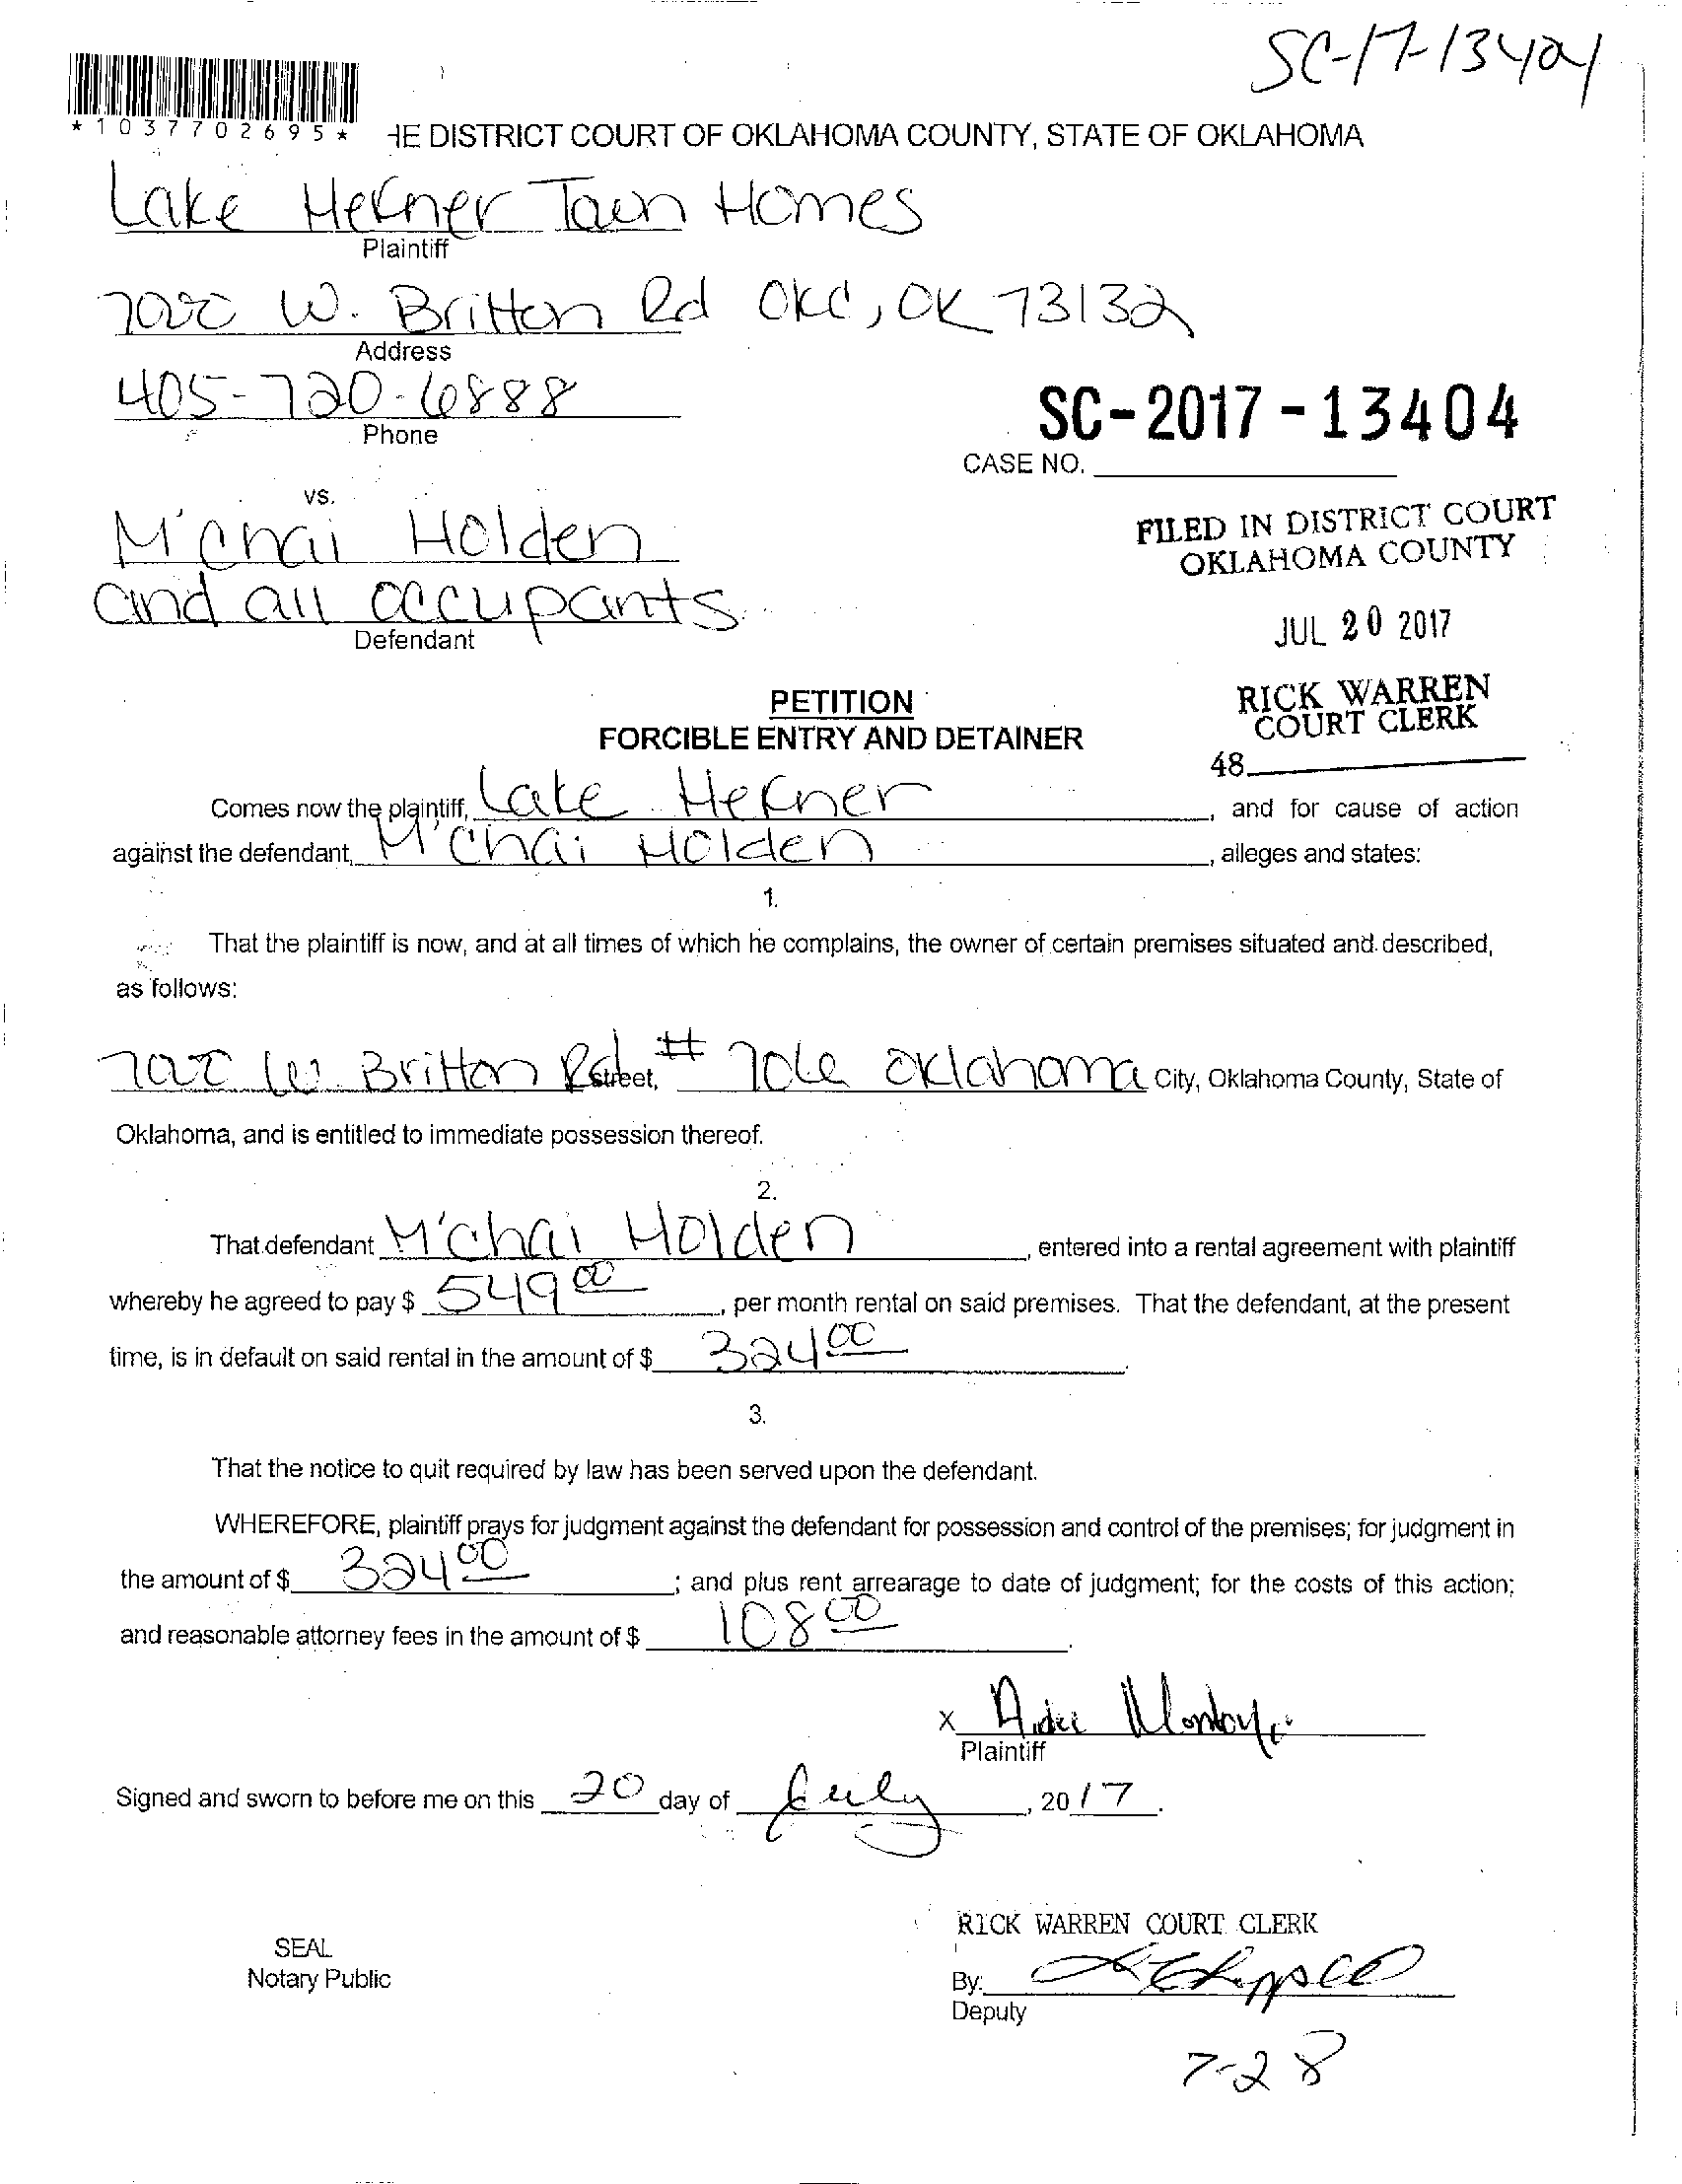 SC-17-13404
*1037702695*
HE DISTRICT COURT OF OKLAHOMA COUNTY, STATE OF OKLAHOMA
Lake Hefner Town Homes
Plaintiff
W. Britton Rd OKC, OK 73132
Address
405-720-6888
Phone
SC-2017-13404
CASE NO.
vs.
M'Chai Holden
and all occupants
Defendant
FILED IN DISTRICT COURT
OKLAHOMA COUNTY
JUL 20 2017
RICK WARREN
COURT CLERK
48
PETITION
FORCIBLE ENTRY AND DETAINER
Comes now the plaintiff, Lake Hefner, and for cause of action
against the defendant, M'Chai Holden, alleges and states:
1.
That the plaintiff is now, and at all times of which he complains, the owner of certain premises situated and described,
as follows:
W. Britton Rd street, # Oklahoma City, Oklahoma County, State of
Oklahoma, and is entitled to immediate possession thereof.
2.
That defendant M'Chai Holden, entered into a rental agreement with plaintiff
whereby he agreed to pay $ 549 00, per month rental on said premises. That the defendant, at the present
time, is in default on said rental in the amount of $ 324 00.
3.
That the notice to quit required by law has been served upon the defendant.
WHEREFORE, plaintiff prays for judgment against the defendant for possession and control of the premises; for judgment in
the amount of $ 324 00; and plus rent arrearage to date of judgment; for the costs of this action;
and reasonable attorney fees in the amount of $ 108 00.
x
Plaintiff
Signed and sworn to before me on this 20 day of July, 2017.
RICK WARREN COURT CLERK
SEAL
Notary Public
By:
Deputy
7-28